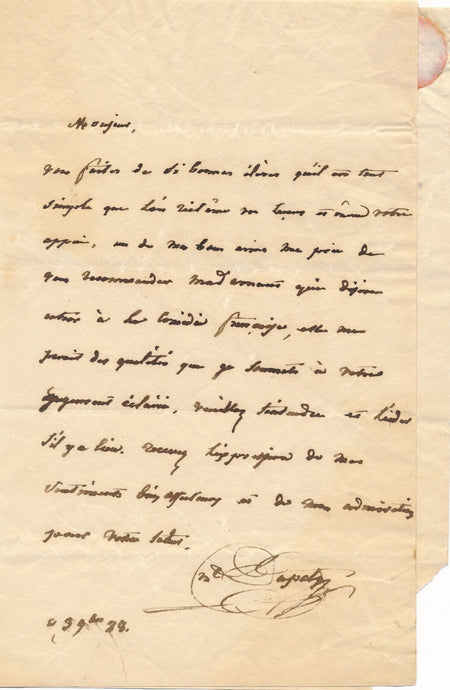 Monsieur,
vous faites de si bonnes élèves qu'il est tout
simple que l'on réclame vos leçons et même votre
appui, un de mes bons amis me prie de
vous recommander Mad qui désire
entrer à la comédie française, elle me
parait des qualités que je soumets à votre
jugement éclairé, veuillez l'entendre et l'aider
s'il y a lieu. recevez l'expression de mes
sentiments bien affectueux et de mon admiration
pour votre talent.
Dupaty
9bre